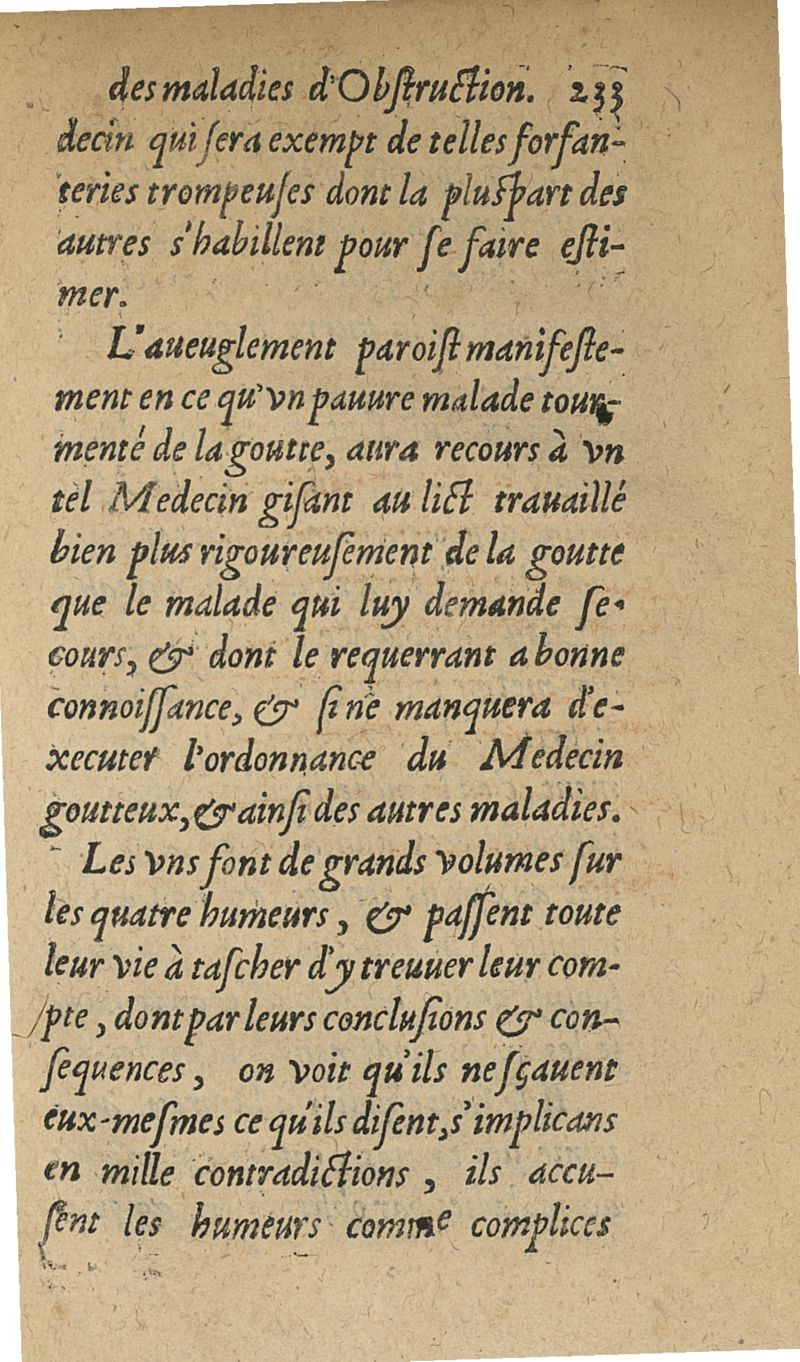 des maladies d'Obſtruction. 233
decin qui ſera exempt de telles forfan-
teries trompeuſes dont la pluſpart des
autres s'habillent pour ſe faire eſti-
mer.
L'aueuglement paroiſt manifeſte-
ment en ce qu'vn pauure malade tour-
menté de la goutte, aura recours à vn
tel Medecin giſant au lict trauaillé
bien plus rigoureuſement de la goutte
que le malade qui luy demande ſe-
cours, & dont le requerrant a bonne
connoiſſance, & ſi ne manquera d'e-
xecuter l'ordonnance du Medecin
goutteux, & ainſi des autres maladies.
Les vns font de grands volumes ſur
les quatre humeurs, & paſſent toute
leur vie à taſcher d'y treuuer leur com-
pte, dont par leurs concluſions & con-
ſequences, on voit qu'ils ne ſçauent
eux-meſmes ce qu'ils diſent, s'implicans
en mille contradictions, ils accu-
ſent les humeurs comme complices